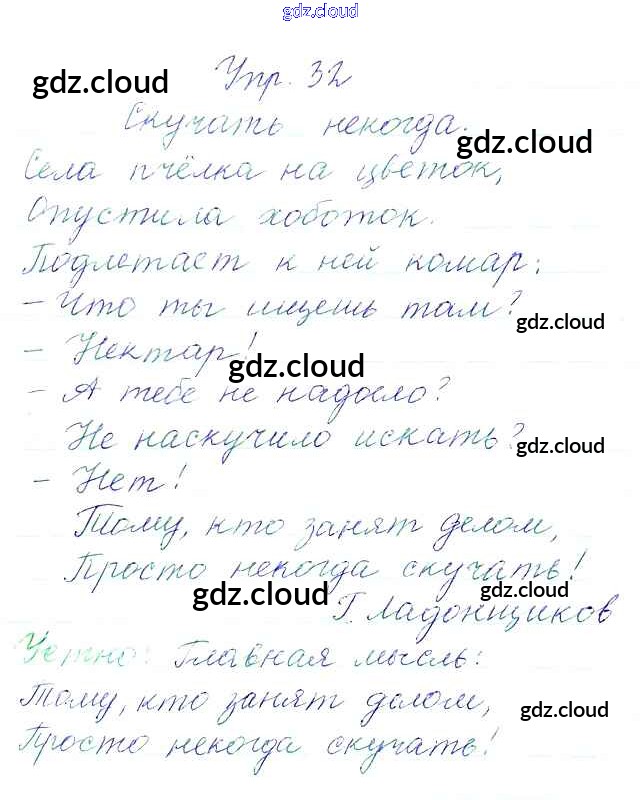 gdz.cloud
gdz.cloud
Упр. 32
Скучать некогда.
gdz.cloud
Села пчёлка на цветок,
Опустила хоботок.
Подлетает к ней комар:
– Что ты ищешь там?
gdz.cloud
– Нектар!
gdz.cloud
– А тебе не надоело?
Не наскучило искать?
gdz.cloud
– Нет!
Тому, кто занят делом,
Просто некогда скучать!
gdz.cloud
Г. Ладонщиков
gdz.cloud
Устно: Главная мысль:
Тому, кто занят делом,
gdz.cloud
Просто некогда скучать!